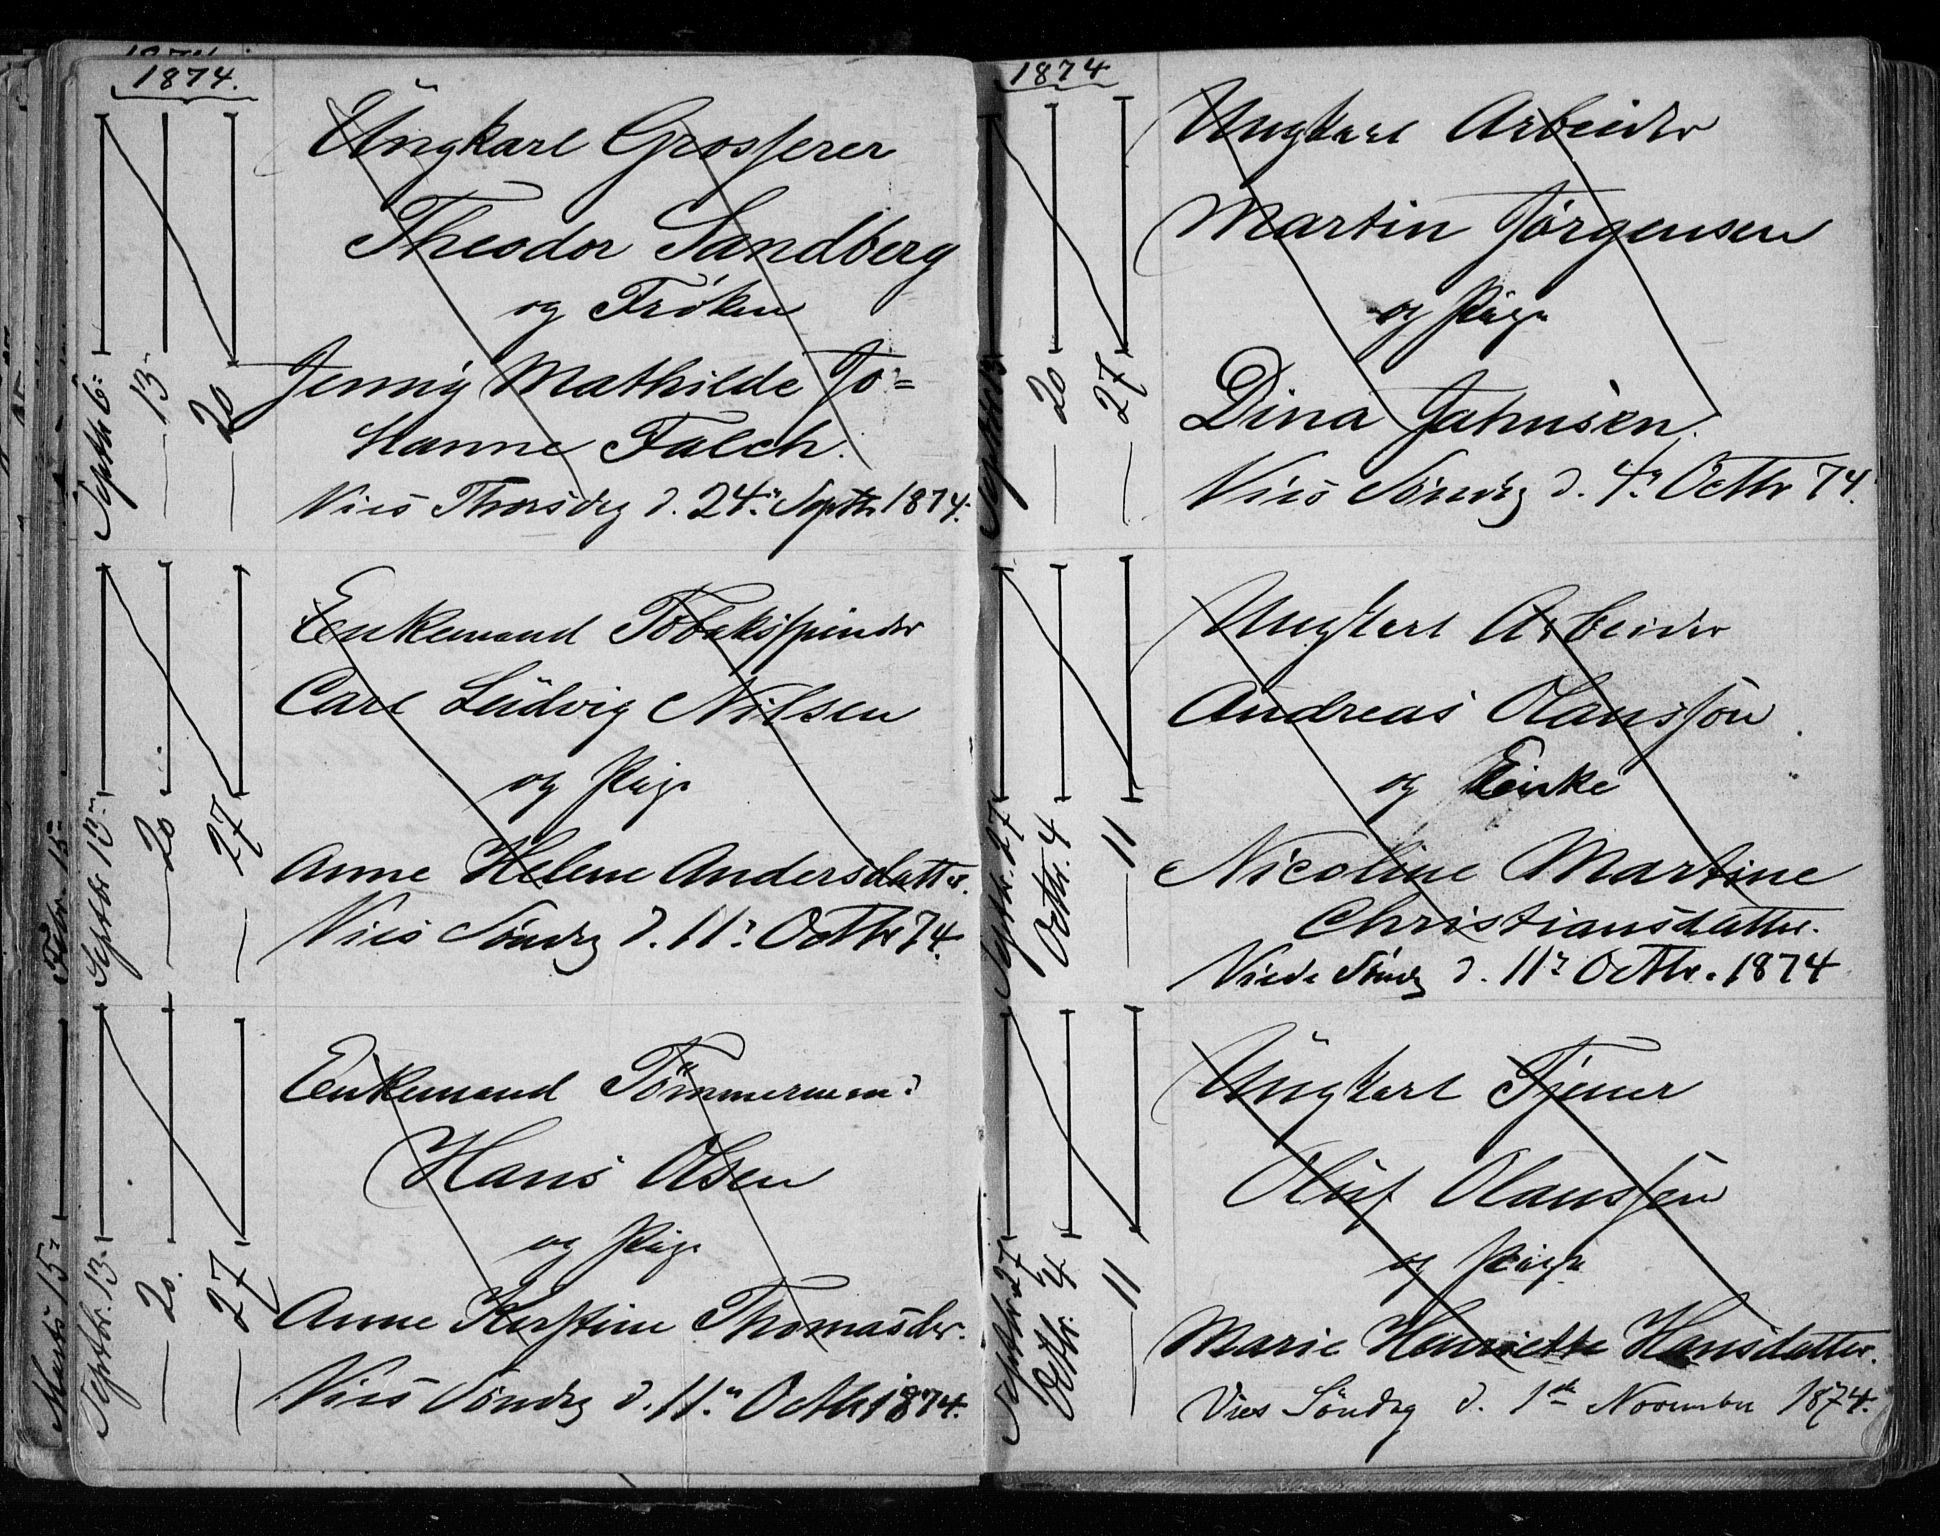 1874.
Septbr 6.
— 13
— 20
Ungkarl Grosserer
Theodor Sandberg
og Frøken
Jenny Mathilde Jo=
hanne Falch.
Vies Thorsdag d. 24. Septbr 1874.
Septbr 13.
— 20
— 27
Enkemand Tobaksspinder
Carl Ludvig Nilsen
og Pige
Anne Helene Andersdatter.
Vies Søndag d. 11. Octbr 74.
Septbr. 13.
— 20.
— 27
Enkemand Tømmermand
Hans Olsen
og Pige
Anne Kirstine Thomasdtr.
Vies Søndag d. 11. Octbr 1874.
Febr. 15.
Marts 15.
1874
Septbr 13
— 20
— 27
Ungkarl Arbeider
Martin Jørgensen
og Pige
Dina Jahnsen.
Vies Søndag d. 4. Octbr 74.
Septbr. 27
Octbr. 4
— 11
Ungkarl Arbeider
Andreas Olanssøn
og Enke
Nicoline Martine
Christiansdatter.
Viede Søndag d. 11. Octbr. 1874
Septbr. 27
Octbr. 4
— 11
Ungkarl Tjener
Oluf Olanssøn
og Pige
Marie Henriette Hansdatter.
Vies Søndag d. 1ste November 1874.